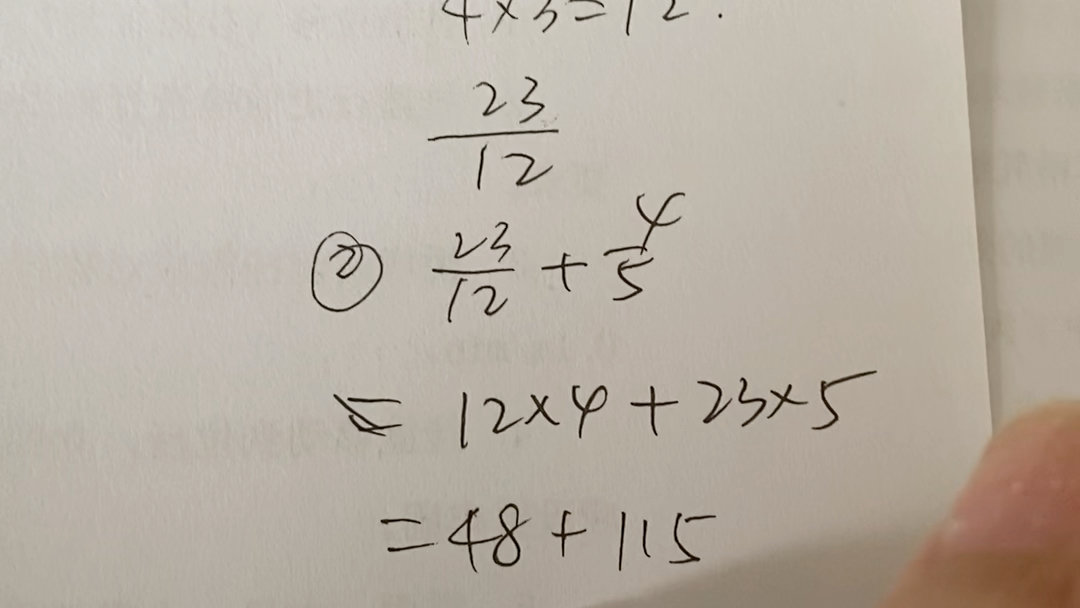 4×3=12.
23
12
② 23/12 + 4/5
= 12×4+23×5
=48+115